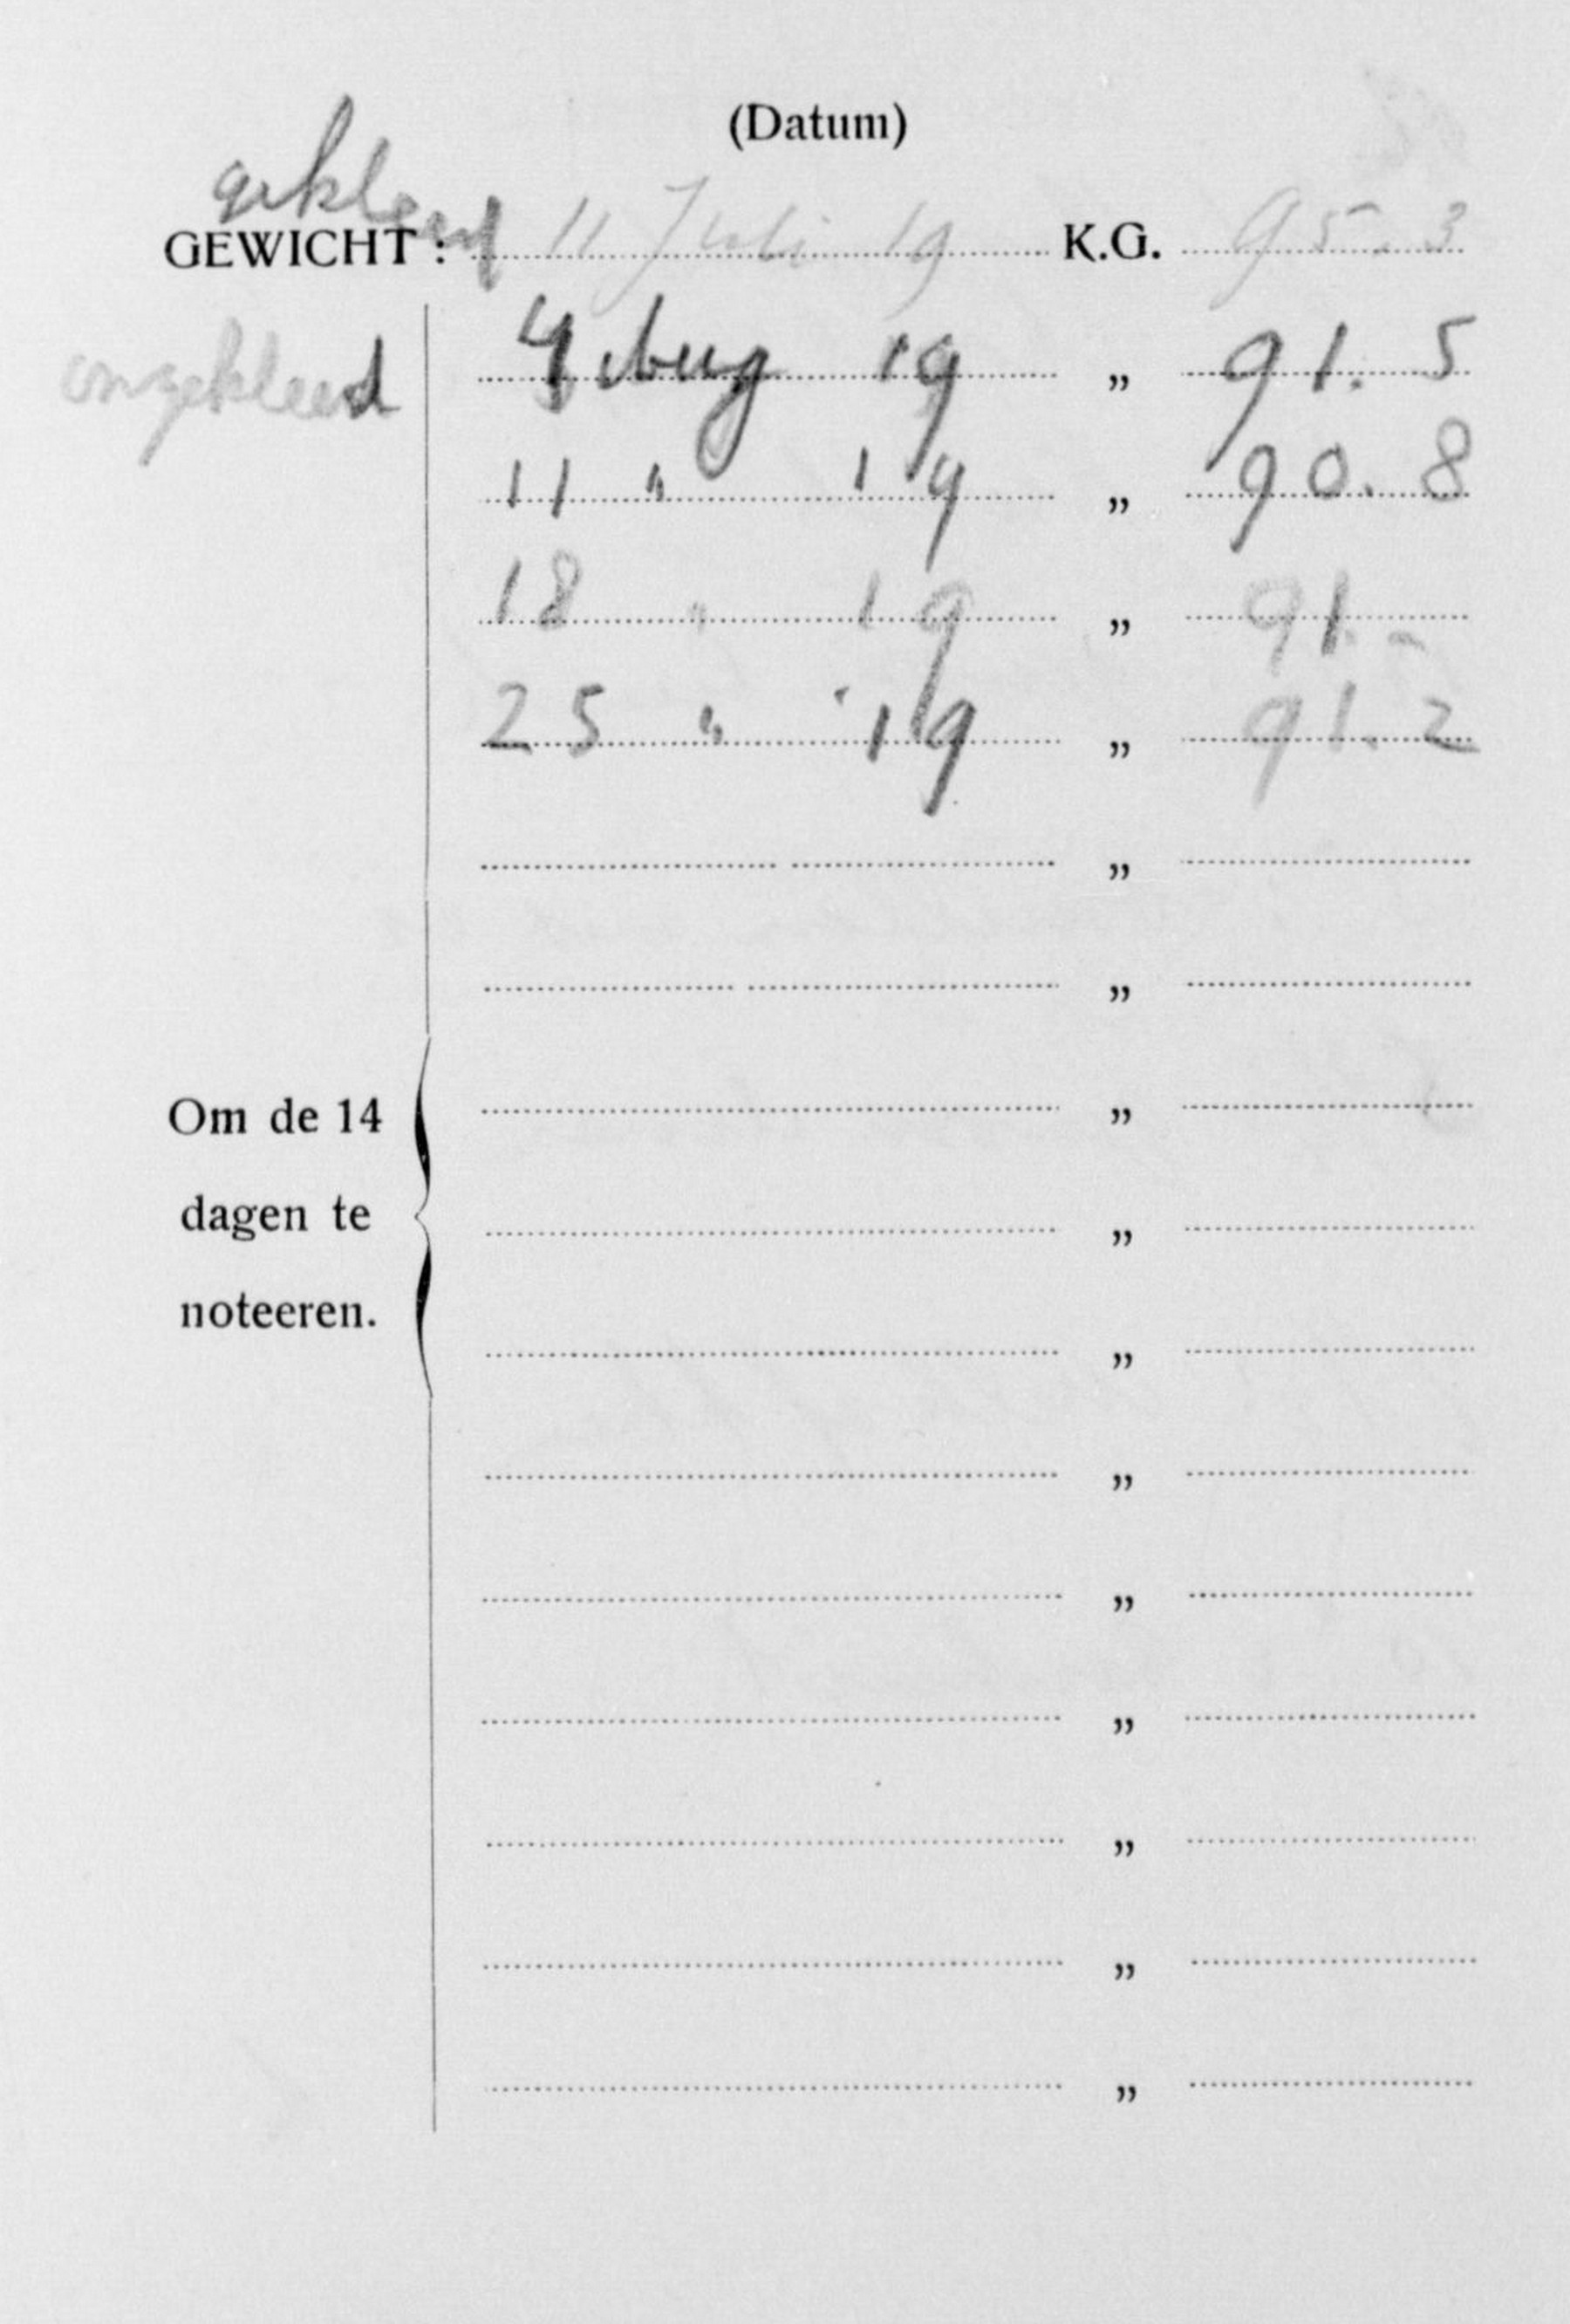 (Datum)
gekleed
GEWICHT: 11 Juli 19 K.G. 95.3
ongekleed 4 Aug 19 „ 91.5
11 " 19 „ 90.8
18 " 19 „ 91.-
25 " 19 „ 91.2
„
„
Om de 14 „
dagen te „
noteeren. „
„
„
„
„
„
„